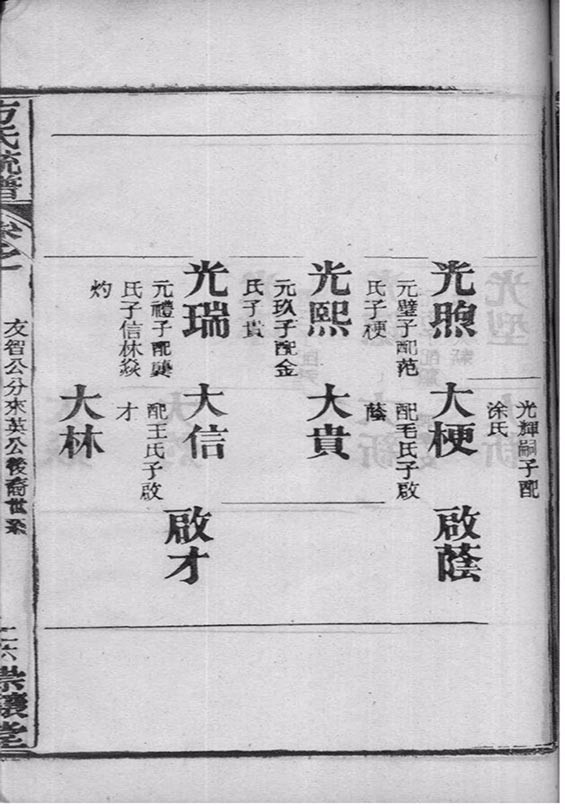 光輝嗣子配
涂氏
光煦
元璧子配范
氏子梗
大梗
配毛氏子啟
蔭
啟蔭
光熙
元玖子配金
氏子貴
大貴
光瑞
元禮子配襄
氏子信林焱
灼
大信
配王氏子啟
才
啟才
大林
方氏統譜
卷之一
友智公分來英公後裔世系
二六
崇讓堂